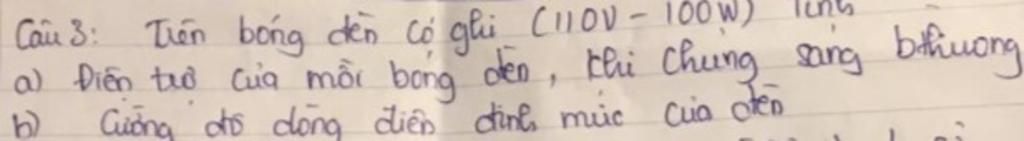 Câu 3: Trên bóng đèn có ghi (110V - 100W) Tính
a) Điện trở của mỗi bóng đèn, khi chúng sáng bthường
b) Cường độ dòng điện định mức của đèn